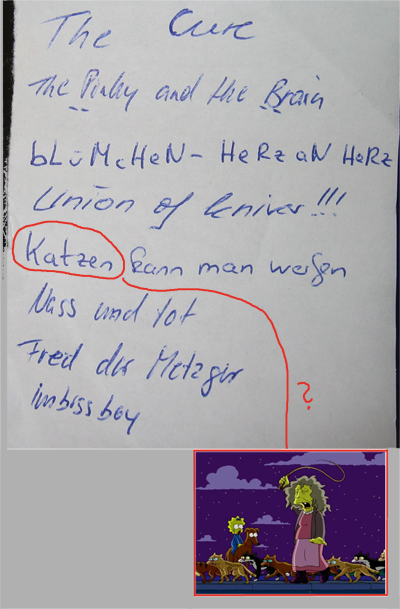 The Cure
the Pinky and the Brain
bLüMcHeN - HeRz aN HeRz
Union of knives!!!
Katzen kann man werfen
Nass und tot
Fred der Metzger
imbissboy
?